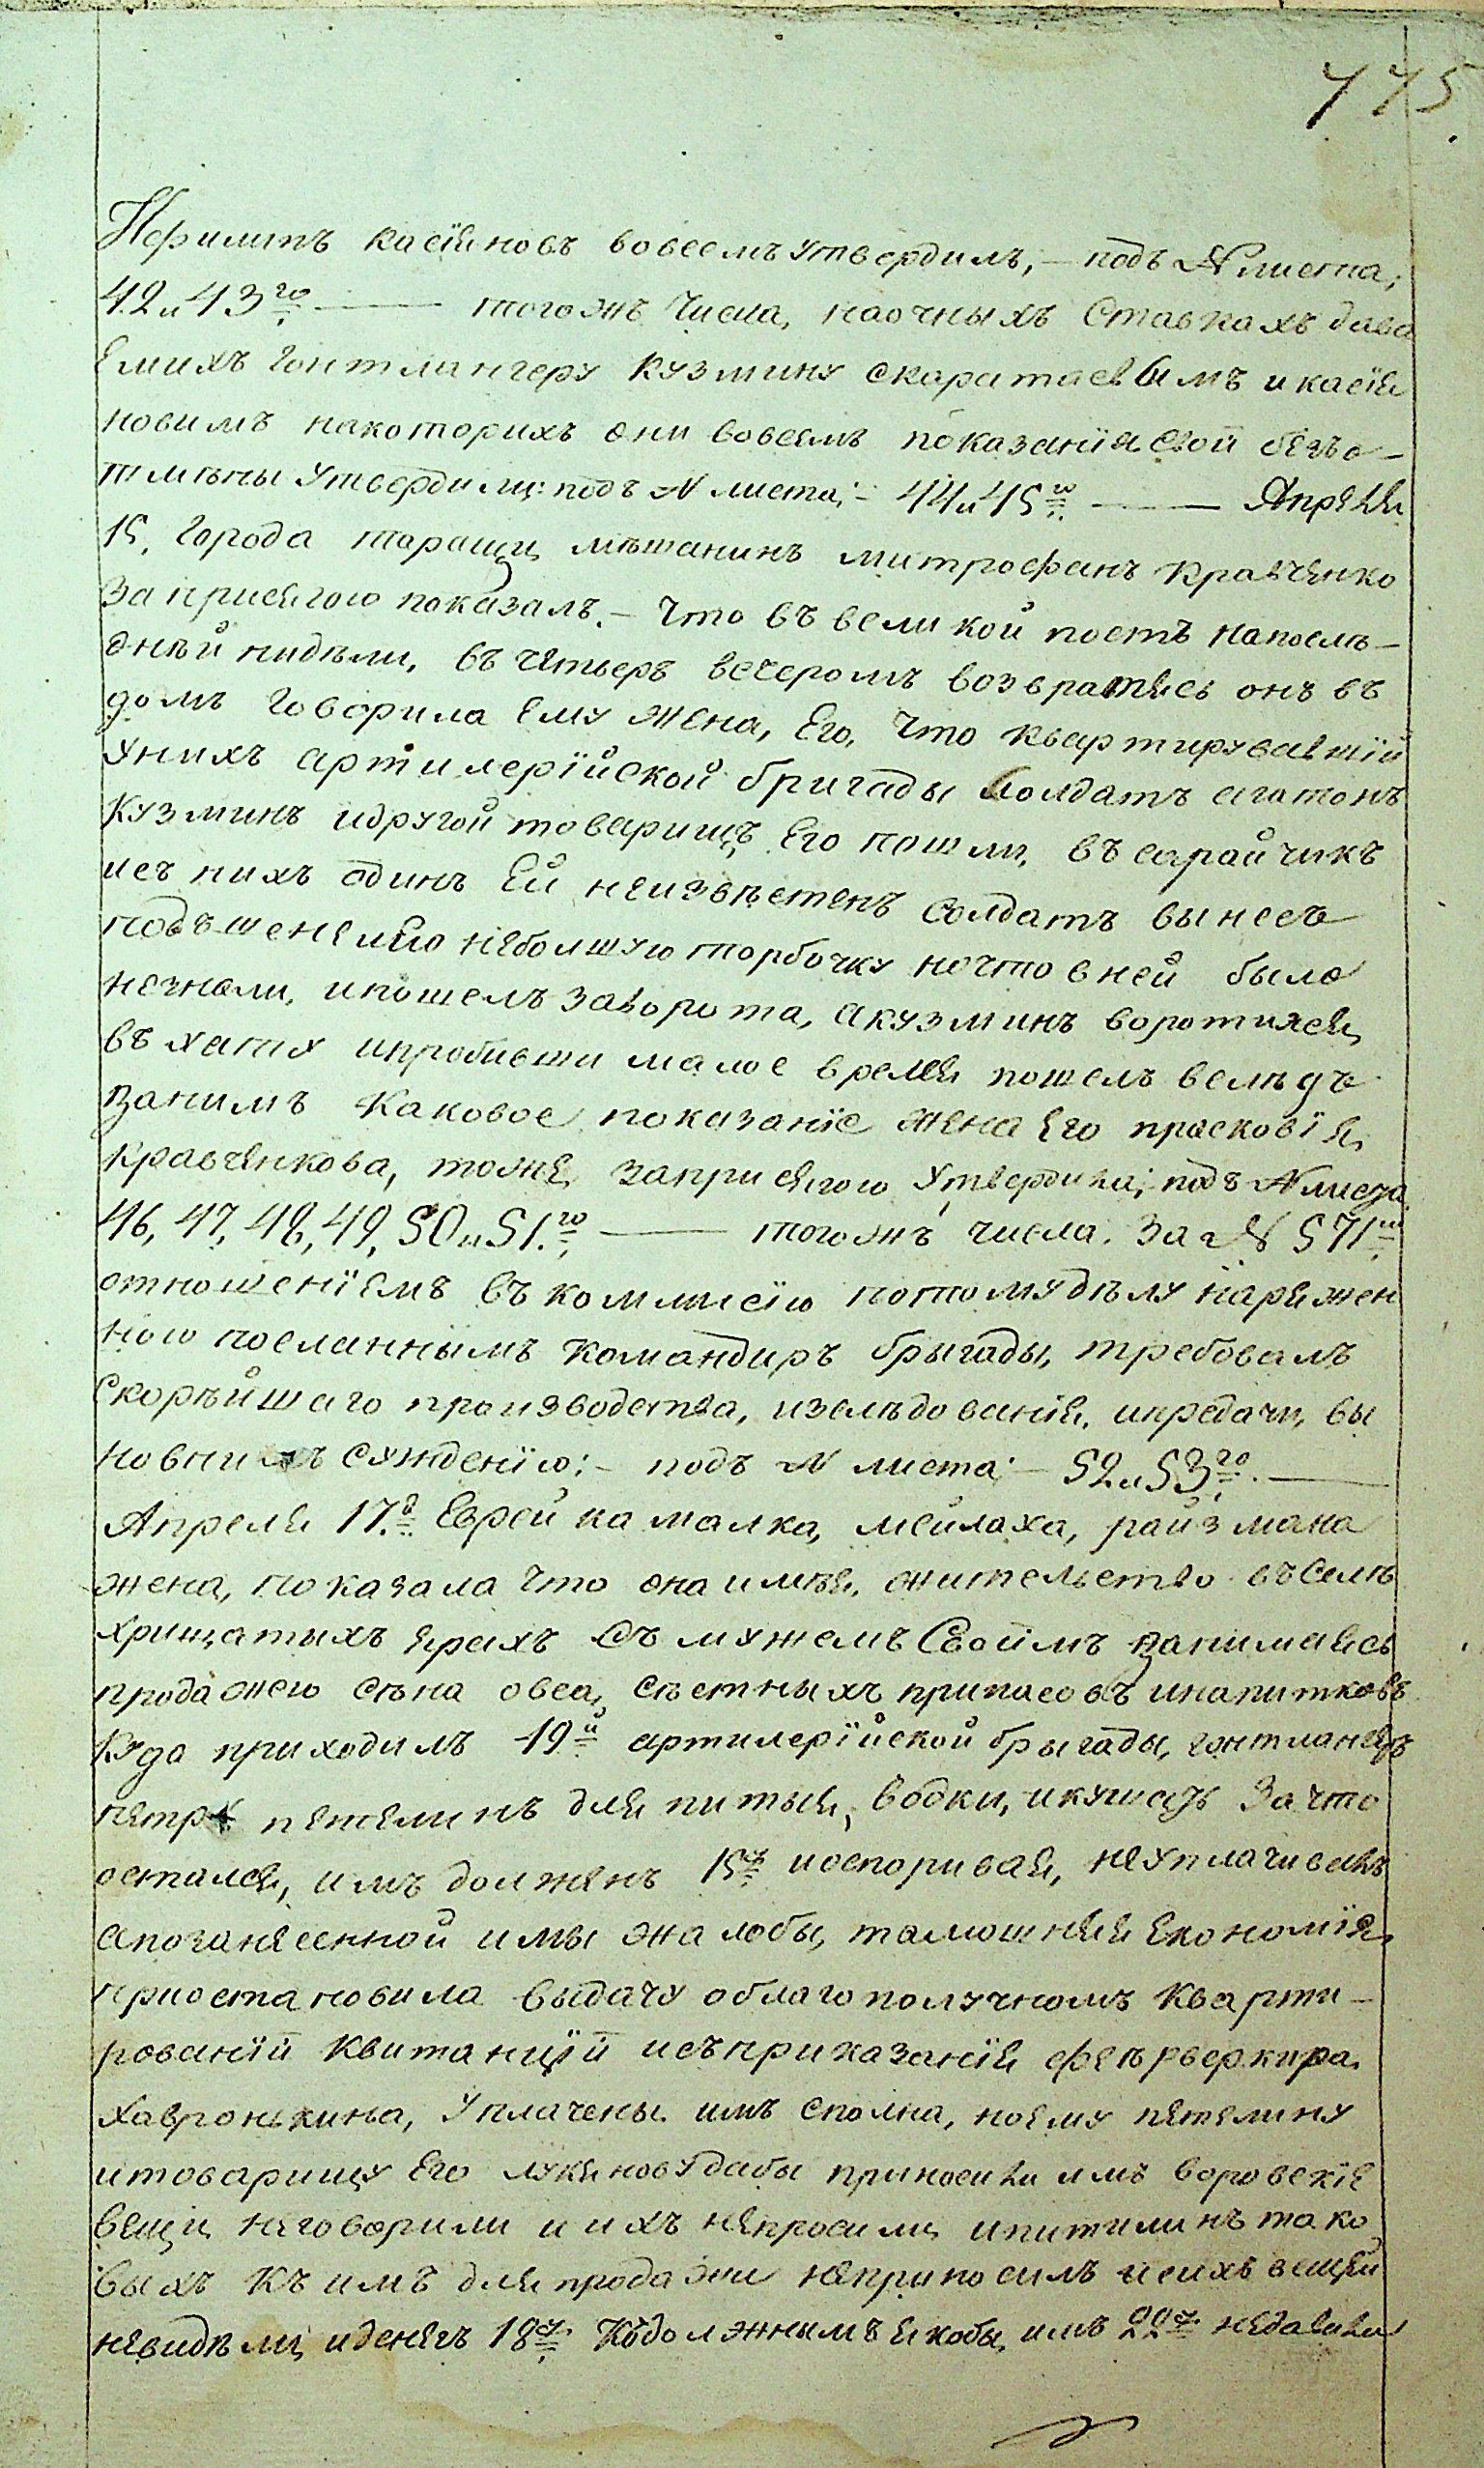 775.
Нефилитъ касіяновъ вовсемъ утвердилъ, — подъ № листа;
42 и 43го —— тогожъ числа, наочныхъ ставкахъ дава
емихъ гонтлангеру кузмину скаратаевымъ и касія
новимъ накоторихъ они вовсемъ показанія свои безъо-
тмѣны утвердили: подъ № листа; — 44 и 45го —— Апреля
15, города таращи мѣшанинъ митрофанъ кравченко
заприсягою показалъ. — что въ великой постъ напослѣ-
днѣй нидѣли, въ четьверъ вечеромъ возвратясь онъ въ
домъ говорила ему жена, Его, что квартирувавшій
унихъ артилерїйской бригады солдатъ агатонъ
кузминъ идругой товарищъ Его пошли, въ сарайчикъ
исъ нихъ одинъ Ей неизвѣстенъ солдатъ вынесъ
подъшенелию неболшую торбочку ночто вней было
незнали, ипошелъ заворота, акузминъ воротился
въ хату ипробивши малое время пошелъ велѣдъ
занимъ каковое показанїе жена Его прасковїя,
кравченкова, тоже, заприсягою утвердила; подъ № листа
46, 47, 48, 49, 50 и 51.го —— тогожъ числа. За № 571м
отношенїемъ въ коммисїю потомудѣлу наряжен
ною посланнымъ командиръ брыгады, требовалъ
скорѣйшаго производства, изслѣдованія, ипредачи, вы
новнихъ сужденїю: — подъ № листа: — 52 и 53го. ——
Апреля 17.го Еврейка малка, мейлаха, райзмана
жена, показала что она имѣя, жительство въ селѣ
хрищатыхъ ярахъ съ мужемъ своимъ занимаясь
продажею сѣна овса, сьестныхъ припасовъ инапитковъ
куда приходилъ 19й артилерїйской брыгады, гонтлангеръ
петръ петелинъ для питья, водки, икушать за что
остался, имъ долженъ 15 иоспоривая, неуплачивалъ
апозанесенной имы жалобы, тамошняя економїя,
приостановила выдачу облагополучномъ кварти-
рованїй квитанцїй исъприказанїя феерверкира
хавронькина, уплачены имъ сполна, ноему петелину
итоварищу его лукянову дабы приносили имъ воровскїе
вещи неговорили и ихъ непросили ипитилинъ тако
выхъ къ имъ для продажи неприносилъ исихъ вещей
невидѣли иденегъ 18 къдолжнымъ якобы имъ 22 недавали